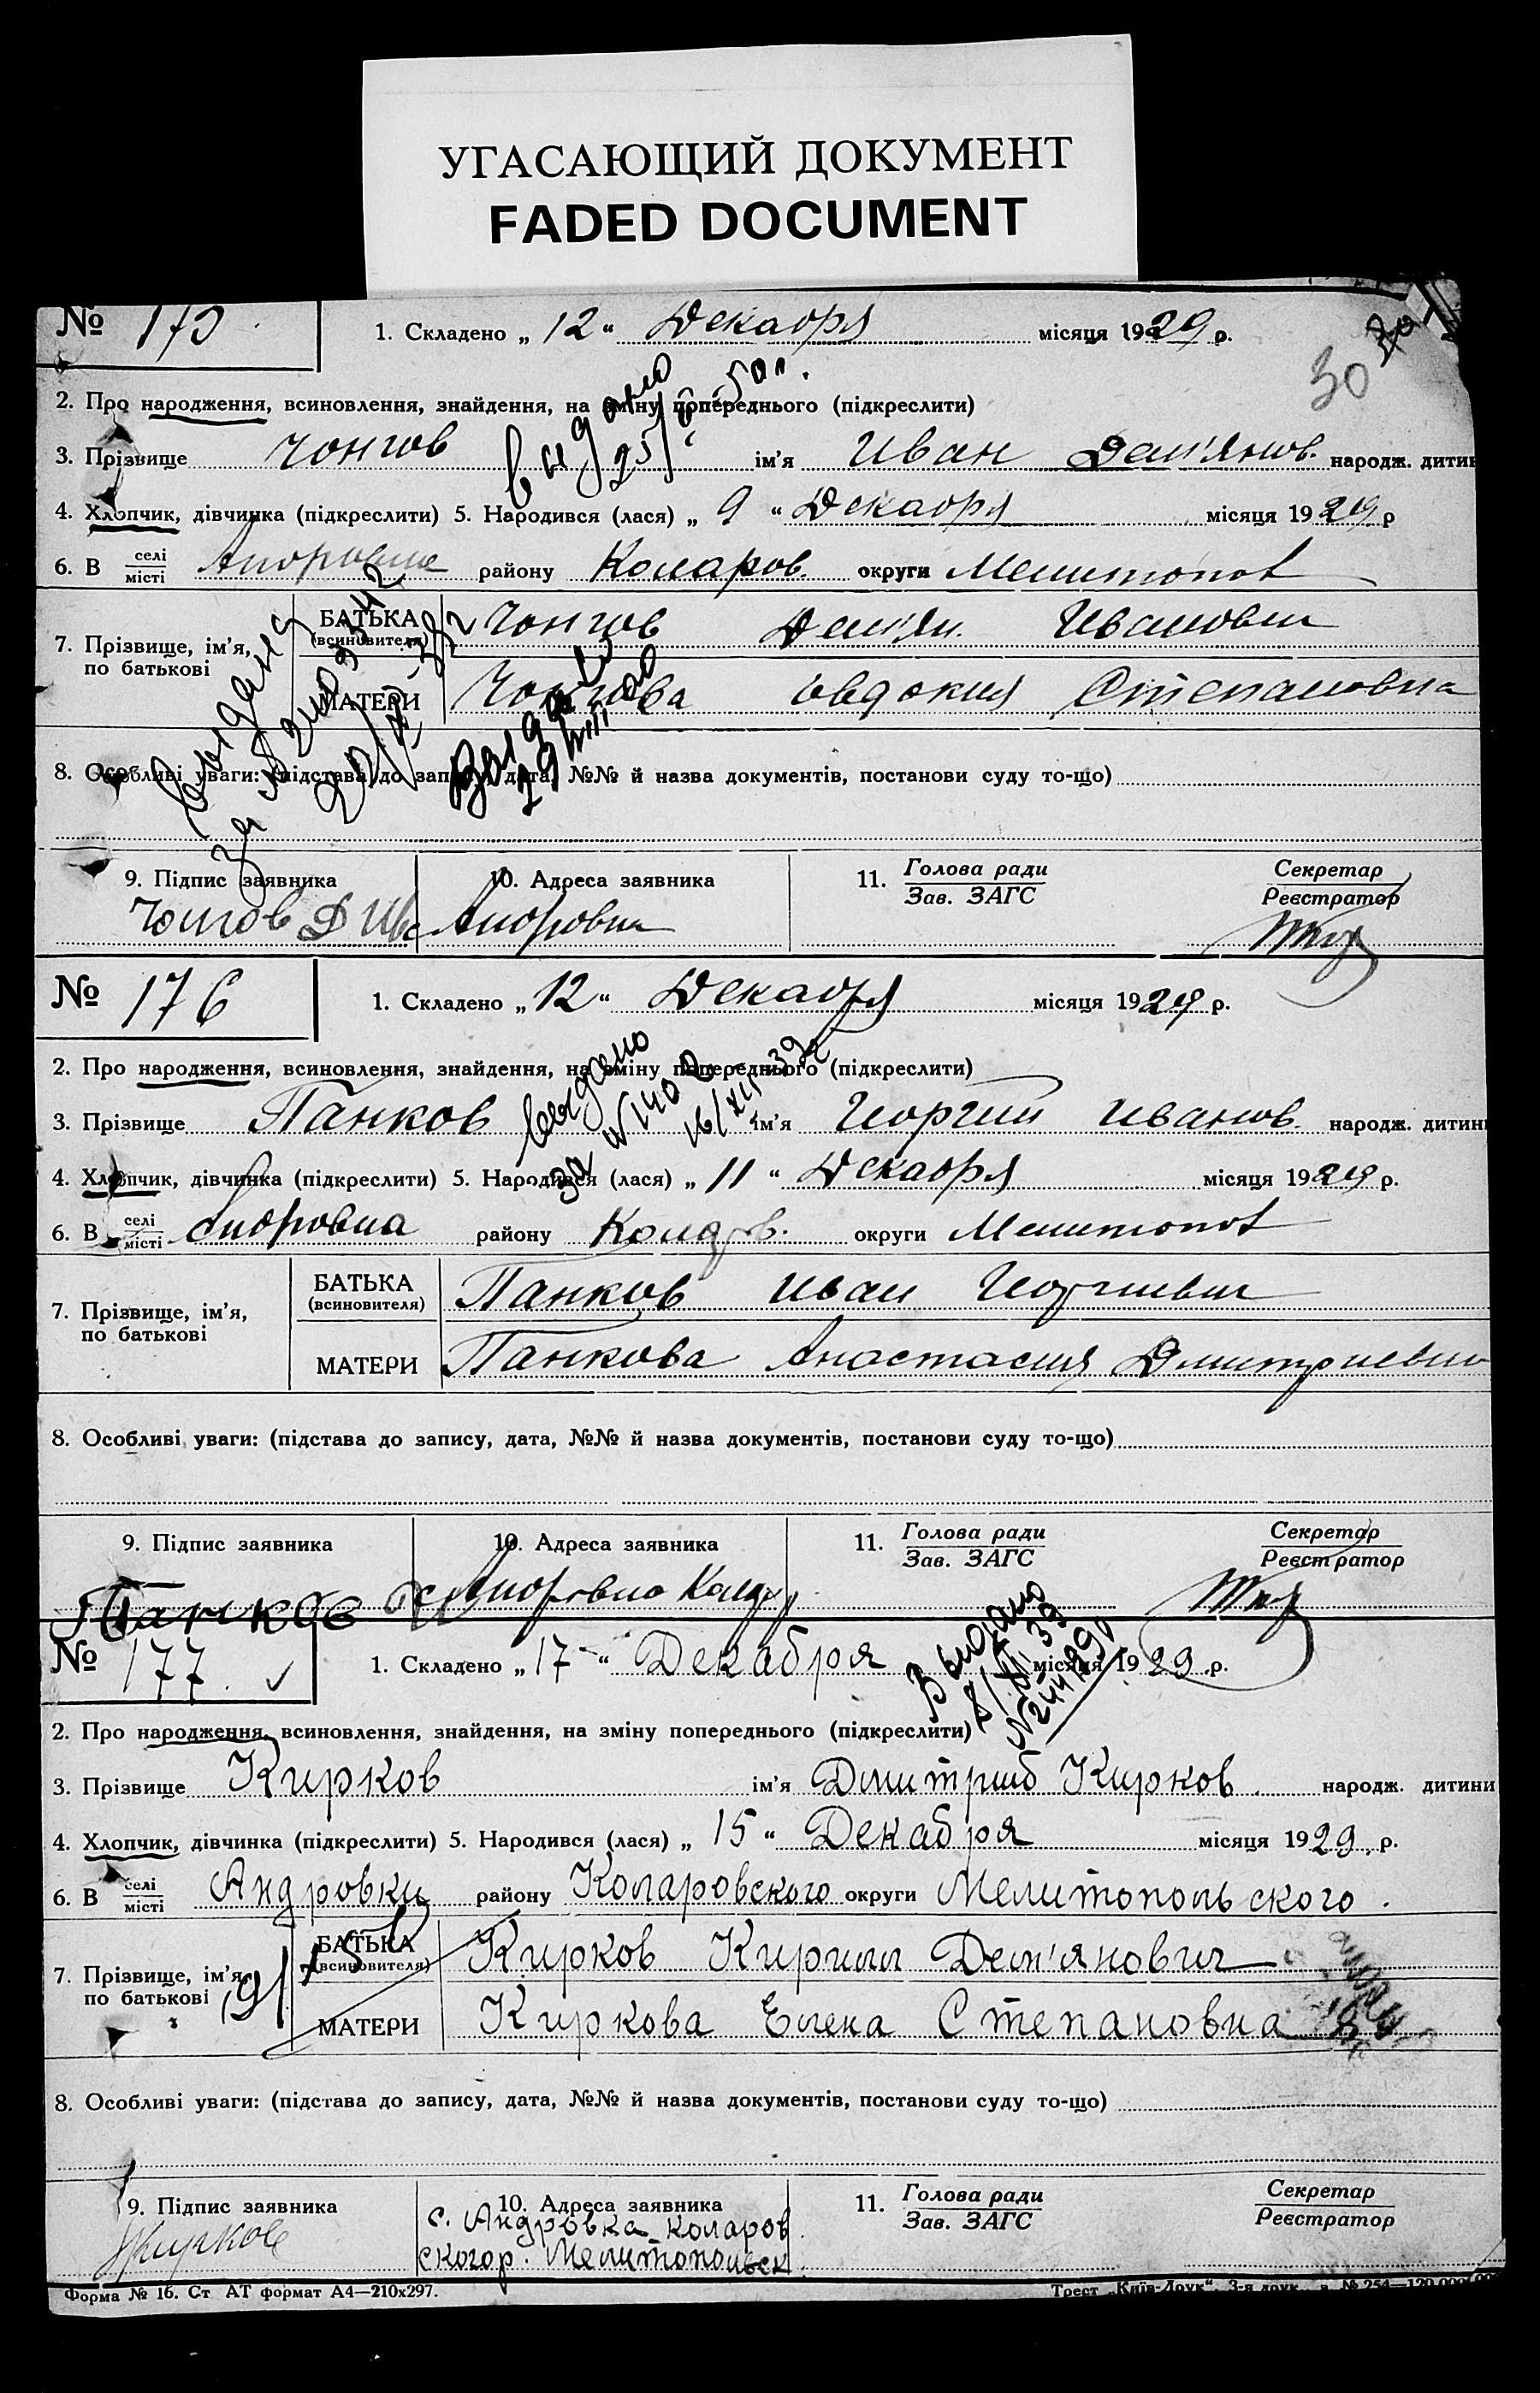 УГАСАЮЩИЙ ДОКУМЕНТ
FADED DOCUMENT
№ 175
1. Складено „ 12 “ Декабря місяця 1929 р.
30
2. Про народження, всиновлення, знайдення, на зміну попереднього (підкреслити)
3. Прізвище Чонгов ім'я Иван Дем'янов. народж. дитин
4. Хлопчик, дівчинка (підкреслити) 5. Народився (лася) „ 9 “ Декабря місяця 1929 р
6. В селі/місті району Коларов. округи Мелитопол
7. Прізвище, ім'я, по батькові
БАТЬКА (всиновителя) Чонгов Дем'ян. Иванович
МАТЕРИ Чонгова Евдокия Степановна
8. Особливі уваги: (підстава до запису, дата, №№ й назва документів, постанови суду то-що)
9. Підпис заявника 10. Адреса заявника 11. Голова ради/Зав. ЗАГС Секретар/Реєстратор
Чонгов Д Ив Андровка
№ 176
1. Складено „ 12 “ Декабря місяця 1929 р.
2. Про народження, всиновлення, знайдення, на зміну попереднього (підкреслити)
выдано
3. Прізвище Панков ім'я Георгий Иванов. народж. дитин
4. Хлопчик, дівчинка (підкреслити) 5. Народився (лася) „ 11 “ Декабря місяця 1929 р.
6. В селі/місті Андровка району Колар. округи Мелитопол
7. Прізвище, ім'я, по батькові
БАТЬКА (всиновителя) Панков Иван Георгиевич
МАТЕРИ Панкова Анастасия Дмитриевна
8. Особливі уваги: (підстава до запису, дата, №№ й назва документів, постанови суду то-що)
9. Підпис заявника 10. Адреса заявника 11. Голова ради/Зав. ЗАГС Секретар/Реєстратор
Панков Андровка Колар
№ 177.
1. Складено „ 17 “ Декабря місяця 1929 р.
Выдано
2. Про народження, всиновлення, знайдення, на зміну попереднього (підкреслити)
3. Прізвище Кирков ім'я Дмитрий Кирков. народж. дитини
4. Хлопчик, дівчинка (підкреслити) 5. Народився (лася) „ 15 “ Декабря місяця 1929 р.
6. В селі/місті Андровки району Коларовского округи Мелитопольского.
7. Прізвище, ім'я, по батькові
БАТЬКА (всиновителя) Кирков Кирилл Дем'янович
МАТЕРИ Киркова Елена Степановна
8. Особливі уваги: (підстава до запису, дата, №№ й назва документів, постанови суду то-що)
9. Підпис заявника 10. Адреса заявника 11. Голова ради/Зав. ЗАГС Секретар/Реєстратор
Кирков с. Андровка Коларов
ского р. Мелитопольск.
Форма № 16. Ст АТ формат А4—210х297.
Трест „Київ-Друк“. 3-я друк.